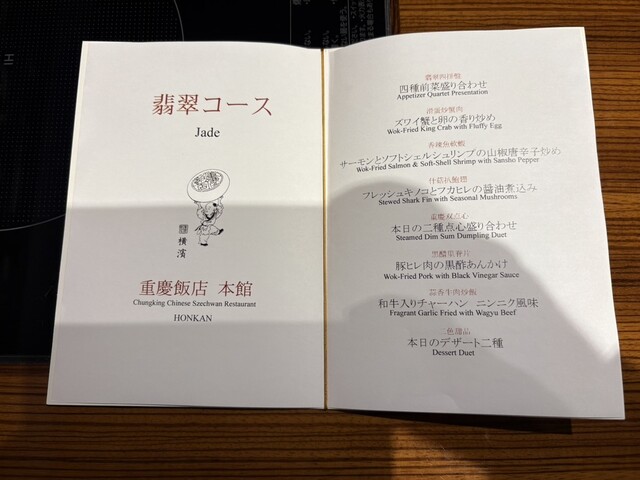 翡翠コース
Jade
横濱
重慶飯店 本館
Chungking Chinese Szechwan Restaurant
HONKAN
翡翠四拼盤
四種前菜盛り合わせ
Appetizer Quartet Presentation
滑蛋炒蟹肉
ズワイ蟹と卵の香り炒め
Wok-Fried King Crab with Fluffy Egg
香辣魚軟蝦
サーモンとソフトシェルシュリンプの山椒唐辛子炒め
Wok-Fried Salmon & Soft-Shell Shrimp with Sansho Pepper
フレッシュキノコとフカヒレの醤油煮込み
Stewed Shark Fin with Seasonal Mushrooms
重慶双点心
本日の二種点心盛り合わせ
Steamed Dim Sum Dumpling Duet
豚ヒレ肉の黒酢あんかけ
Wok-Fried Pork with Black Vinegar Sauce
蒜香牛肉炒飯
和牛入りチャーハン ニンニク風味
Fragrant Garlic Fried with Wagyu Beef
二色甜品
本日のデザート二種
Dessert Duet